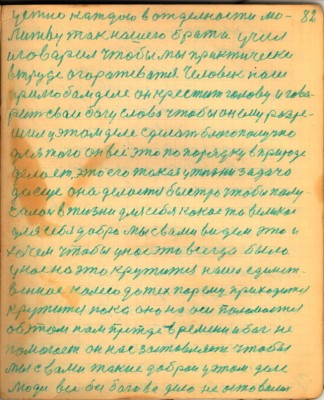 82
устно каждого в отдельности мо-
литву так нашего брата учил
и говорил чтобы мы практически
в труде огораживался. Человек наш
прямо самделе он крестит голову и гова-
рит свои богу слова чтобы он ему разре-
шил у этом деле сделать благополучно
для того он всё это по порядку в природе
делает, это его такая у жизни задача
да еще она делается быстро чтобы полу-
чалось в жизни для себя какое то великое
для себя добро мы с вами видим это и
хочем чтобы у нас это всегда было
у нас на это крутится наше единст-
венное колесо до тех пор ему приходится
крутится пока оно на оси поломается
об этом нам прийдется время и бог не
поможет он нас заставляет чтобы
мы с вами такие добрые у этом деле
люди все бы бога в дело не оставили